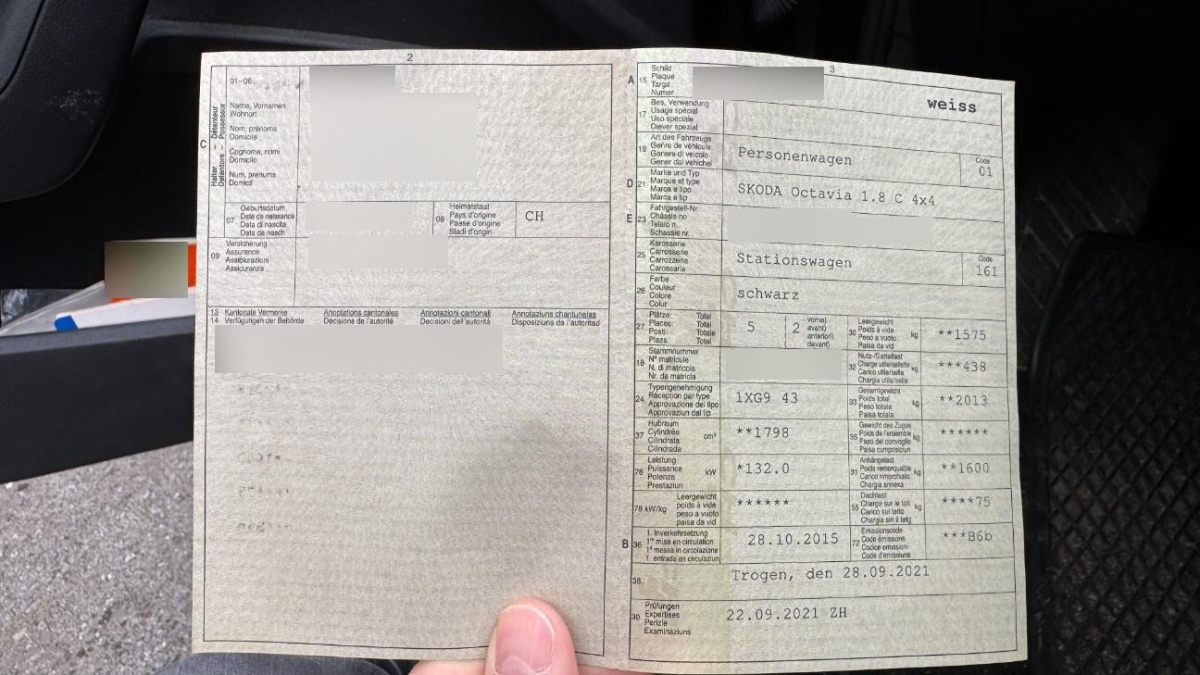 2
01-06
C
Halter - Détenteur
Detentore - Possessur
Name, Vornamen
Wohnort
Nom, prénoms
Domicile
Cognome, nomi
Domicilio
Num, prenums
Domicil
07
Geburtsdatum
Date de naissance
Data di nascita
Data da nasch.
08
Heimatstaat
Pays d'origine
Paese d'origine
Stadi d'origin
CH
09
Versicherung
Assurance
Assicurazione
Assicuranza
13 Kantonale Vermerke Annotations cantonales Annotazioni cantonali Annotaziuns chantunalas
14 Verfügungen der Behörde Décisions de l'autorité Decisioni dell'autorità Disposiziuns da l'autoritad
3
A 15
Schild
Plaque
Targa
Numer
weiss
17
Bes. Verwendung
Usage spécial
Uso speciale
Diever spezial
19
Art des Fahrzeugs
Genre de véhicule
Genere di veicolo
Gener dal vehichel
Personenwagen
Code
01
D 21
Marke und Typ
Marque et type
Marca e tipo
Marca e tip
SKODA Octavia 1.8 C 4x4
E 23
Fahrgestell-Nr.
Châssis no
Telaio n.
Schassis nr.
25
Karosserie
Carrosserie
Carrozzeria
Carossaria
Stationswagen
Code
161
26
Farbe
Couleur
Colore
Colur
schwarz
27
Plätze: Total
Places: Total
Posti: Totale
Plazs: Total
5 ( 2
vorne)
avant)
anteriori)
davant)
30
Leergewicht
Poids à vide
Peso a vuoto
Paisa da vid
kg
**1575
18
Stammnummer
N° matricule
N. di matricola
Nr. da matricla
32
Nutz-/Sattellast
Charge utile/sellette
Carico utile/sella
Chargia utile/sella
kg
***438
24
Typengenehmigung
Réception par type
Approvazione del tipo
Approvaziun dal tip
1XG9 43
33
Gesamtgewicht
Poids total
Peso totale
Paisa totala
kg
**2013
37
Hubraum
Cylindrée
Cilindrata
Cilindrada
cm³
**1798
35
Gewicht des Zuges
Poids de l'ensemble
Peso del convoglio
Paisa cumposiziun
kg
******
76
Leistung
Puissance
Potenza
Prestaziun
kW
*132.0
31
Anhängelast
Poids remorquable
Carico rimorchiato
Chargia annexa
kg
**1600
78 kW/kg
Leergewicht
poids à vide
peso a vuoto
paisa da vid
******
55
Dachlast
Charge sur le toit
Carico sul tetto
Chargia sin il tetg
kg
****75
B 36
1. Inverkehrsetzung
1re mise en circulation
1a messa in circolazione
1. entrada en circulaziun
28.10.2015
72
Emissionscode
Code émissions
Codice emissioni
Code d'emissiuns
***B6b
38
Trogen, den 28.09.2021
39
Prüfungen
Expertises
Perizie
Examinaziuns
22.09.2021 ZH